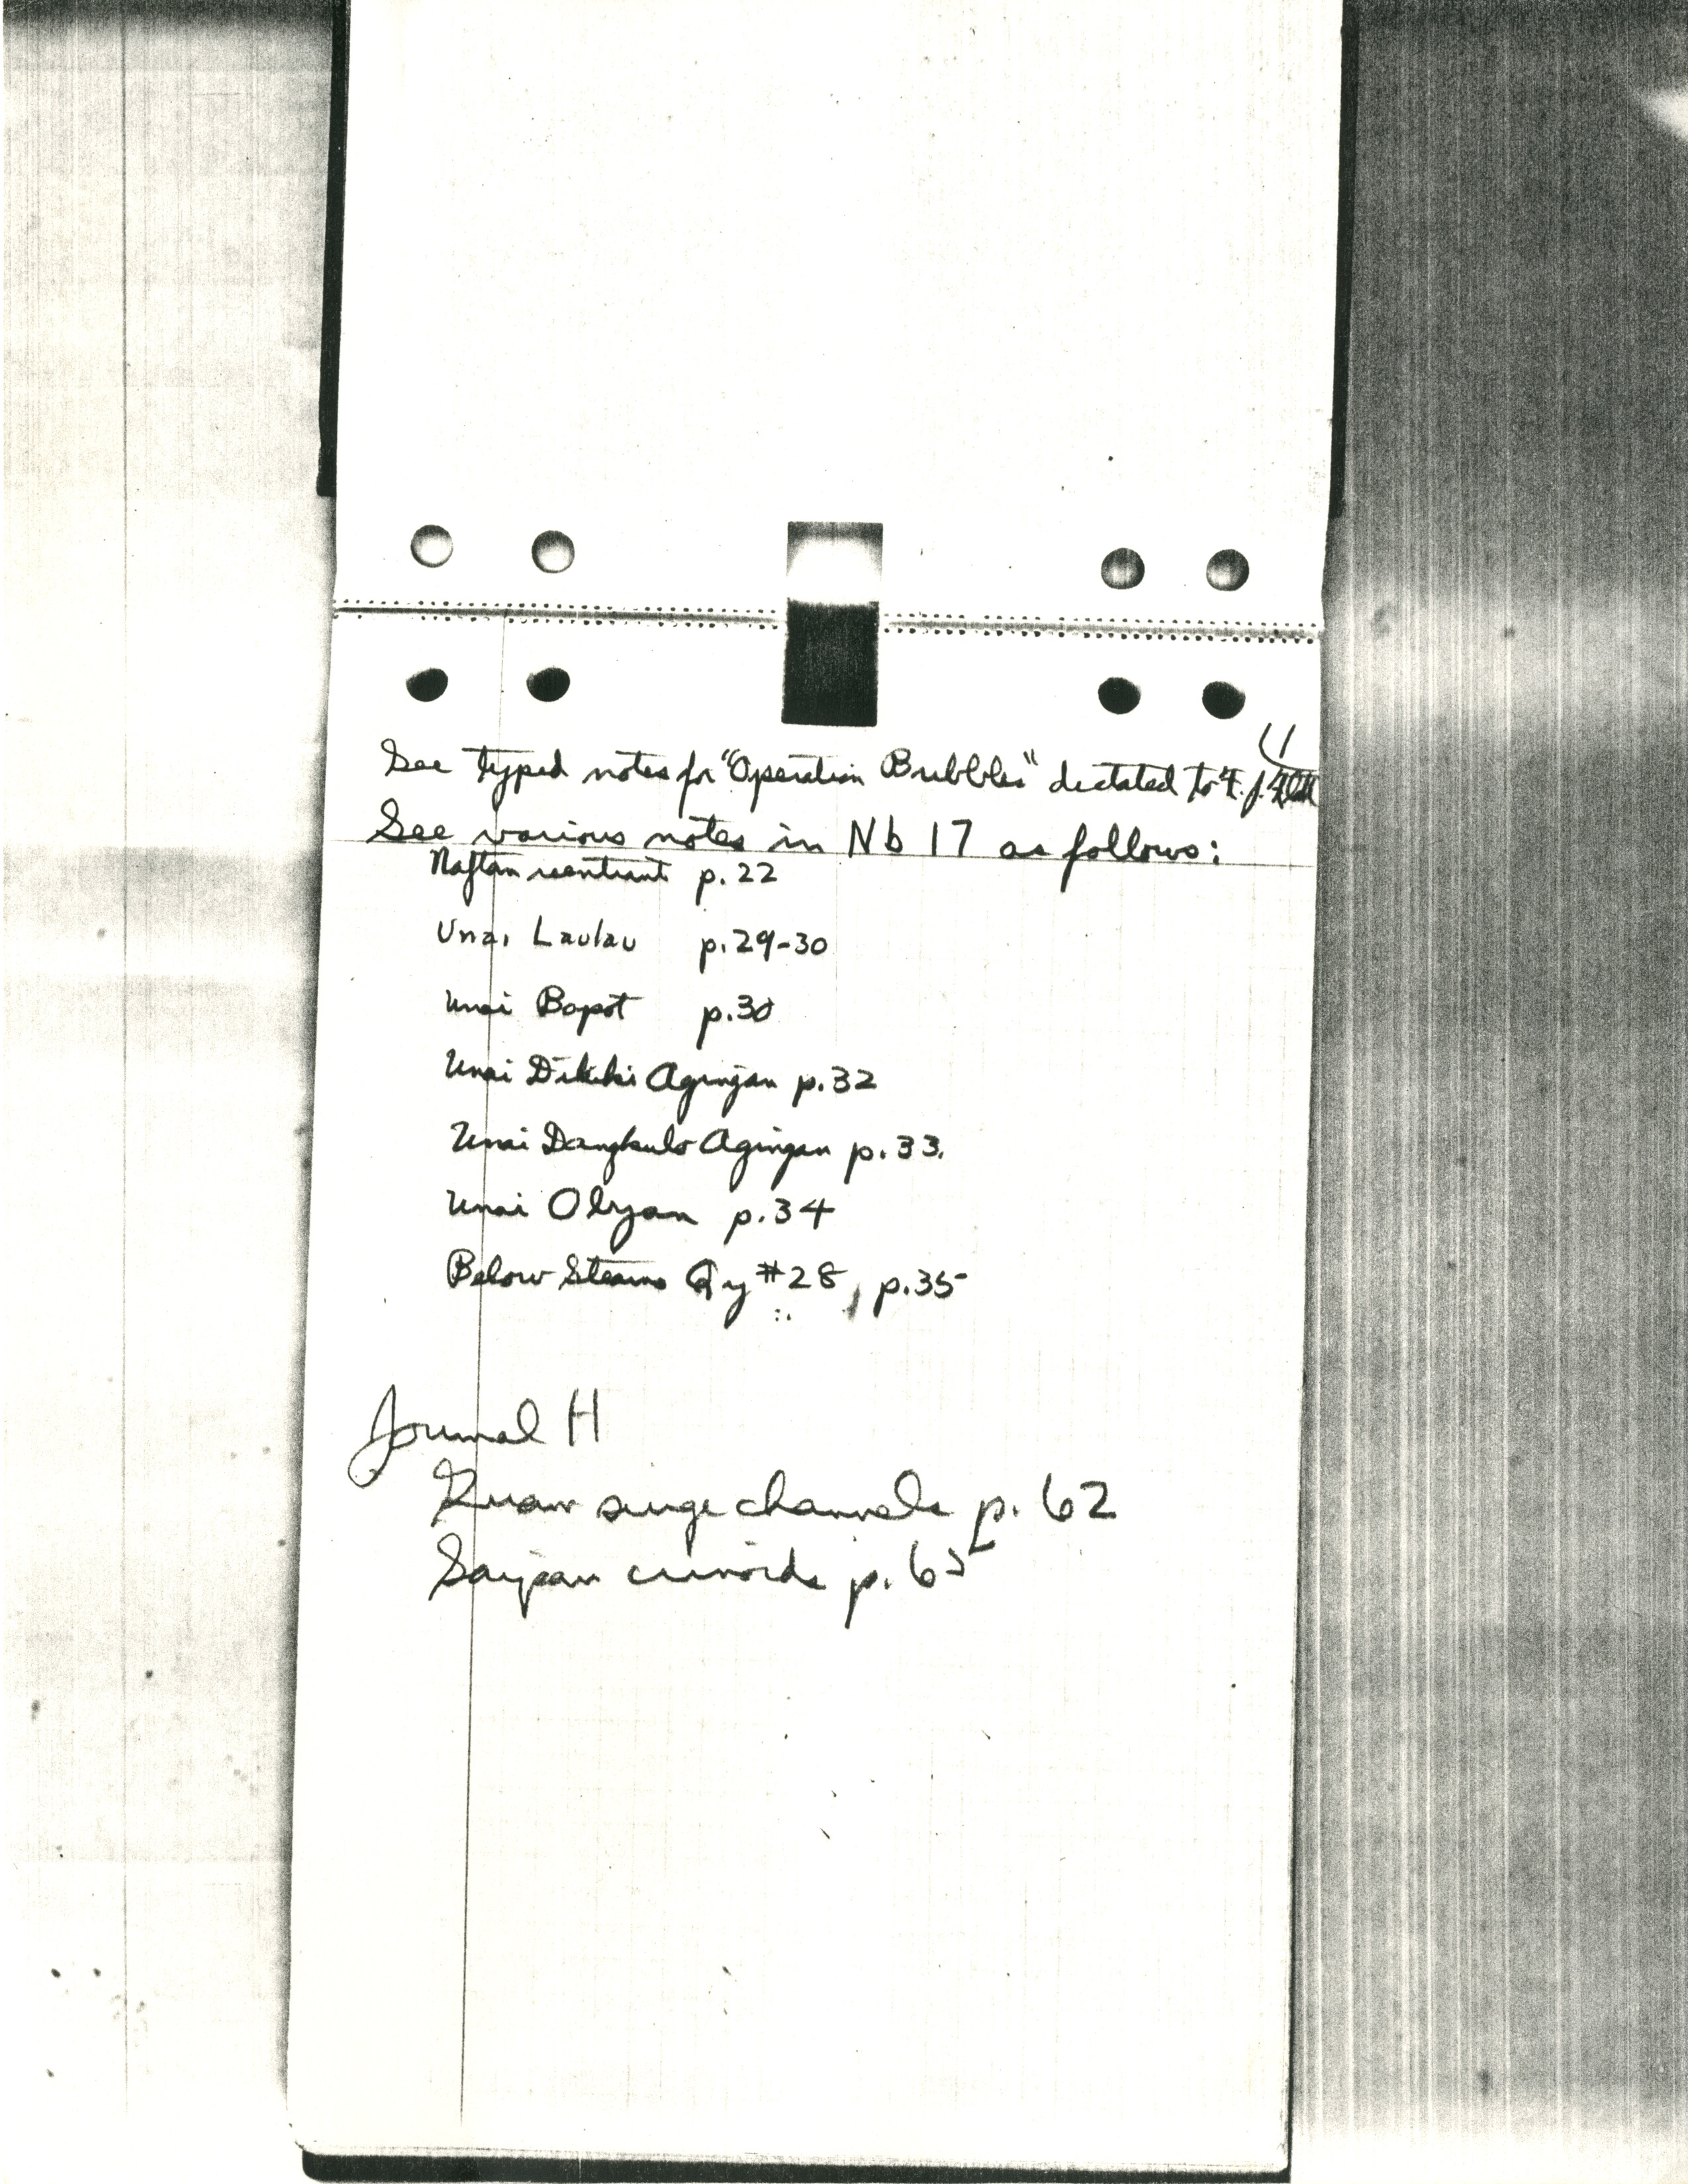 11
See typed notes for "Operation Bubbles" dictated to
See various notes in Nb 17 as follows:
Naftan reentrant p. 22
Unai Laulau p. 29-30
Unai Bapot p. 30
Unai Dikiki Agingan p. 32
Unai Dangkulo Agingan p. 33.
Unai Obyan p. 34
Below Stearns Qy #28, p. 35
Journal H
Guam surge channels p. 62
Saipan crinoids p. 65